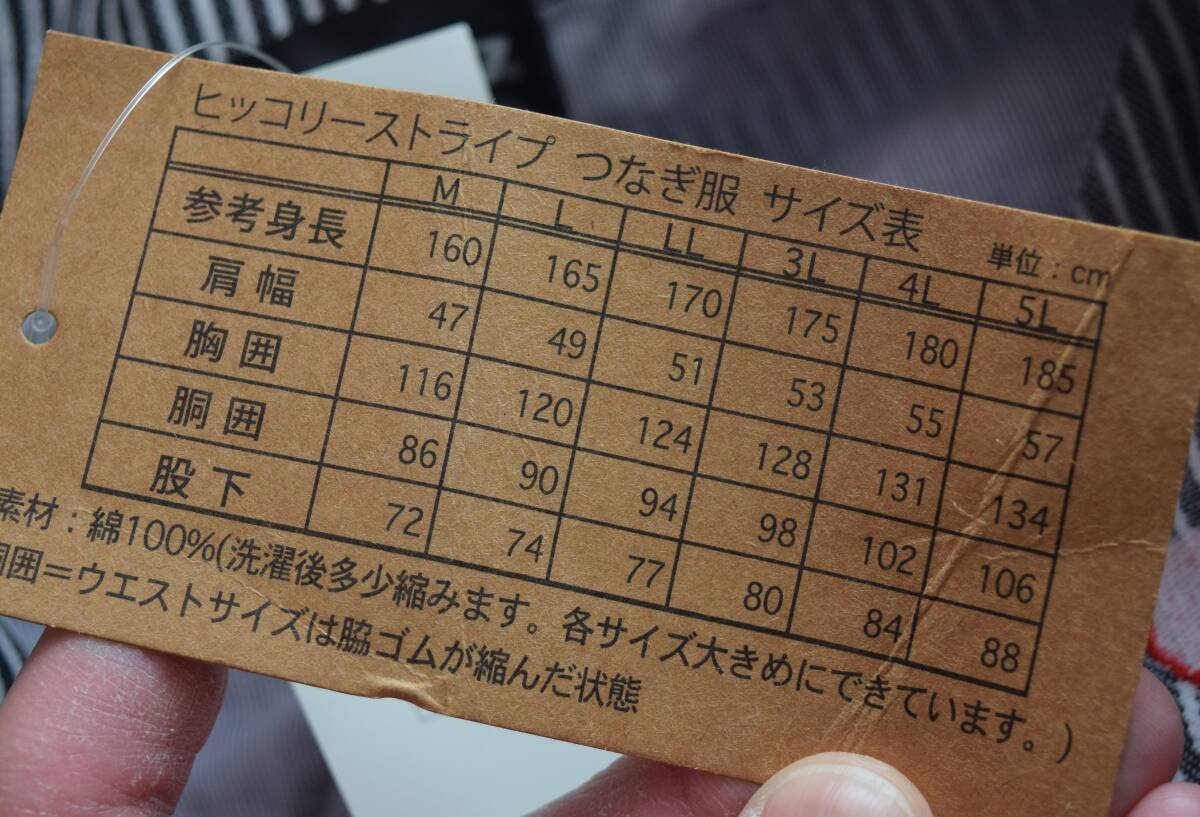 ヒッコリーストライプ つなぎ服 サイズ表
単位：cm
M L LL 3L 4L 5L
参考身長 160 165 170 175 180 185
肩幅 47 49 51 53 55 57
胸囲 116 120 124 128 131 134
胴囲 86 90 94 98 102 106
股下 72 74 77 80 84 88
素材：綿100%(洗濯後多少縮みます。各サイズ大きめにできています。)
胴囲＝ウエストサイズは脇ゴムが縮んだ状態